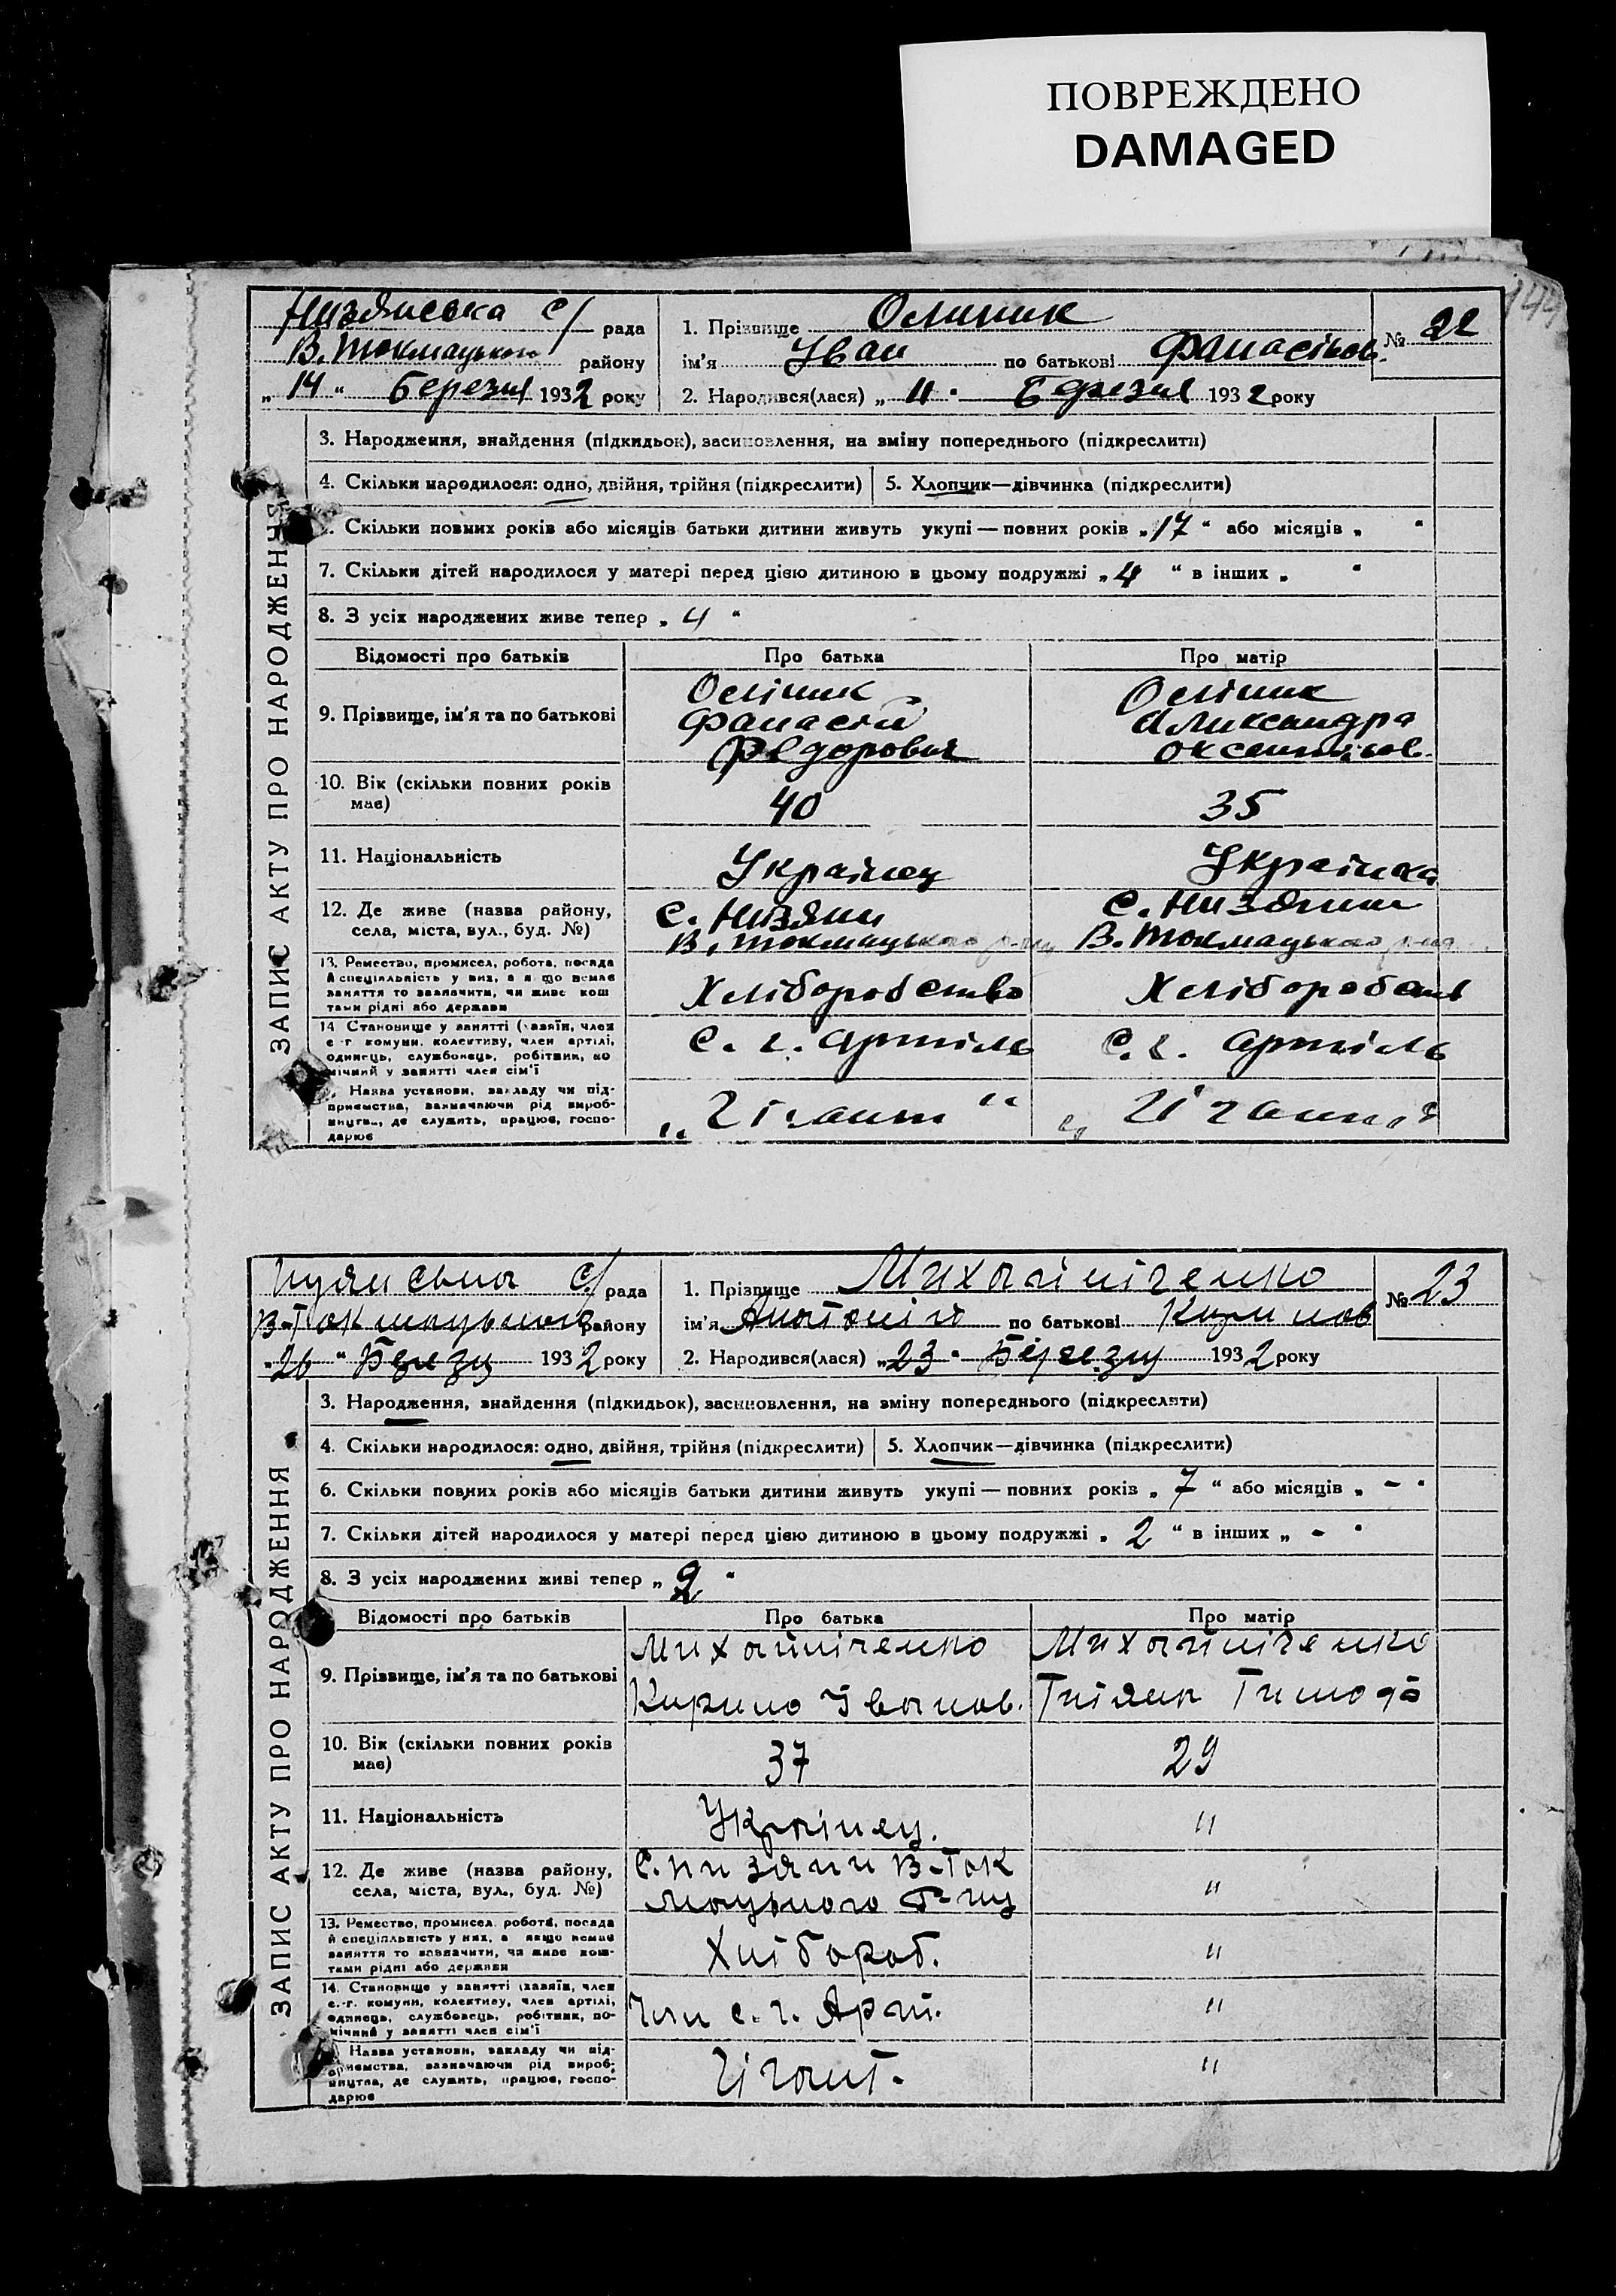 ПОВРЕЖДЕНО
DAMAGED
144
Низянська с/ рада
В. Токмацького району
„14“ Березня 1932 року
1. Прізвище Олиник
№ 22
ім’я Іван по батькові Фанасійов.
2. Народився(лася) „11“ Березня 1932 року
ЗАПИС АКТУ ПРО НАРОДЖЕННЯ
3. Народження, знайдення (підкидьок), засиновлення, на зміну попереднього (підкреслити)
4. Скільки народилося: одно, двійня, трійня (підкреслити) 5. Хлопчик—дівчинка (підкреслити)
Скільки повних років або місяців батьки дитини живуть укупі — повних років „17“ або місяців „ “
7. Скільки дітей народилося у матері перед цією дитиною в цьому подружжі „4“ в інших „ “
8. З усіх народжених живе тепер „4“
Відомості про батьків Про батька Про матір
9. Прізвище, ім’я та по батькові
Олійник Фанасій Федорович
Олійник Александра Оксентійов.
10. Вік (скільки повних років має) 40 35
11. Національність Українец Українка
12. Де живе (назва району, села, міста, вул., буд. №)
с. Низяни В. Токмацького р-ну
с. Низяни В. Токмацького р-ну
13. Ремество, промисел, робота, посада й спеціяльність у них, а якщо немає заняття то зазначити, чи живе коштами рідні або держави
Хліборобство Хлібороботв
14 Становище у занятті (хазяїн, член с.-г. комуни, колективу, член артілі, одинець, службовець, робітник, помічний у занятті член сім’ї
с. г. артіль с. г. артіль
Назва установи, закладу чи підприємства, зазначаючи рід виробництва, де служить, працює, господарює
„Гігант“ „Гігант“
с/ рада
В-Токмацького району
„26“ Березн 1932 року
1. Прізвище Михайліченко
№ 23
ім’я Анатолій по батькові Кирилов
2. Народився(лася) „23“ Березн 1932 року
ЗАПИС АКТУ ПРО НАРОДЖЕННЯ
3. Народження, знайдення (підкидьок), засиновлення, на зміну попереднього (підкреслити)
4. Скільки народилося: одно, двійня, трійня (підкреслити) 5. Хлопчик—дівчинка (підкреслити)
6. Скільки повних років або місяців батьки дитини живуть укупі — повних років „7“ або місяців „-“
7. Скільки дітей народилося у матері перед цією дитиною в цьому подружжі „2“ в інших „-“
8. З усіх народжених живі тепер „2“
Відомості про батьків Про батька Про матір
9. Прізвище, ім’я та по батькові
Михайліченко Кирило Іванов.
Михайліченко
10. Вік (скільки повних років має) 37 29
11. Національність Українец. "
12. Де живе (назва району, села, міста, вул., буд. №)
с. Низяни В-Токмацького Р-ну "
13. Ремество, промисел, робота, посада й спеціяльність у них, а якщо немає заняття то зазначити, чи живе коштами рідні або держави
Хлібороб. "
14. Становище у занятті (хазяїн, член с.-г. комуни, колективу, член артілі, одинець, службовець, робітник, помічний у занятті член сім’ї
Член с. г. Арт. "
Назва установи, закладу чи підприємства, зазначаючи рід виробництва, де служить, працює, господарює
Гігант. "